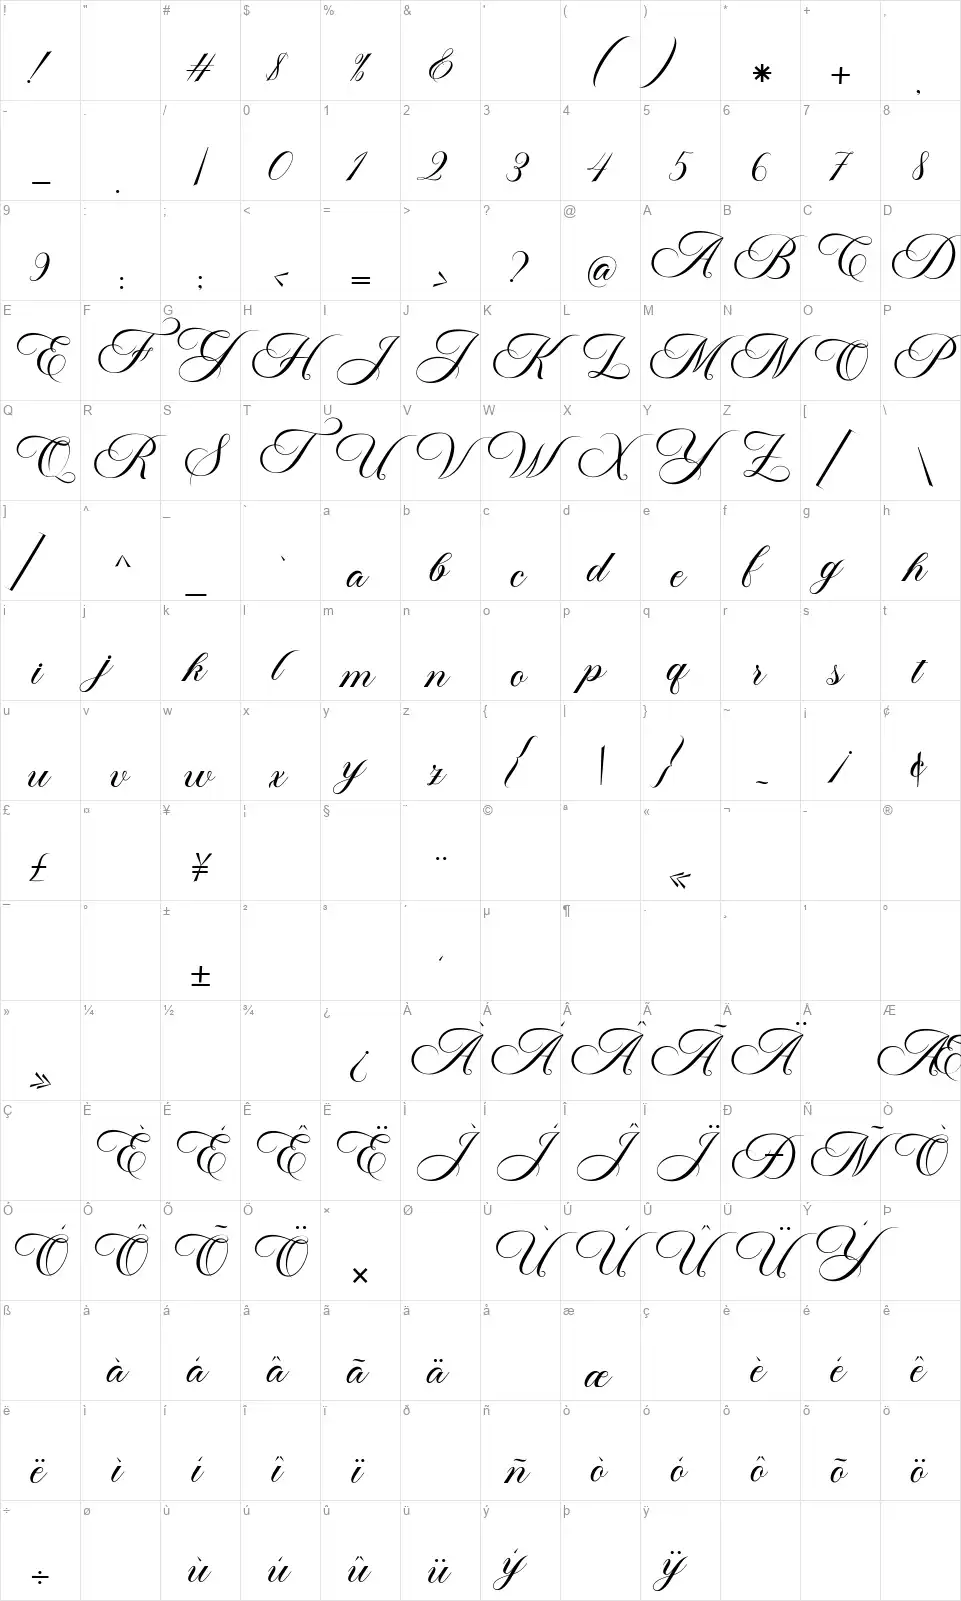 ! " # $ % & ' ( ) * + ,
! # $ % & ( ) * + ,
- . / 0 1 2 3 4 5 6 7 8
- . / 0 1 2 3 4 5 6 7 8
9 : ; < = > ? @ A B C D
9 : ; < = > ? @ A B C D
E F G H I J K L M N O P
E F G H I J K L M N O P
Q R S T U V W X Y Z [ \
Q R S T U V W X Y Z [ \
] ^ _ ` a b c d e f g h
] ^ _ ` a b c d e f g h
i j k l m n o p q r s t
i j k l m n o p q r s t
u v w x y z { | } ~ ¡ ¢
u v w x y z { | } ~ ¡ ¢
£ ¤ ¥ ¦ § ¨ © ª « ¬ - ®
£ ¥ ¨ «
¯ ° ± ² ³ ´ µ ¶ · ¸ ¹ º
± ´
» ¼ ½ ¾ ¿ À Á Â Ã Ä Å Æ
» ¿ À Á Â Ã Ä Æ
Ç È É Ê Ë Ì Í Î Ï Ð Ñ Ò
È É Ê Ë Ì Í Î Ï Ð Ñ Ò
Ó Ô Õ Ö × Ø Ù Ú Û Ü Ý Þ
Ó Ô Õ Ö × Ù Ú Û Ü Ý
ß à á â ã ä å æ ç è é ê
à á â ã ä æ è é ê
ë ì í î ï ð ñ ò ó ô õ ö
ë ì í î ï ñ ò ó ô õ ö
÷ ø ù ú û ü ý þ ÿ
÷ ù ú û ü ý ÿ